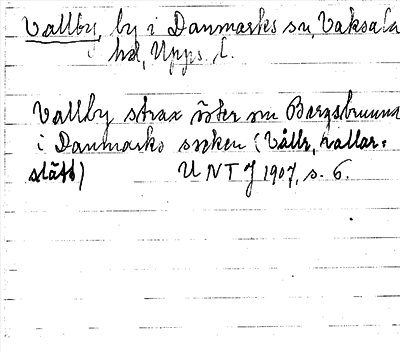 Vallby, by i Danmarks sn, Vaksala
hd, Upps. l.
Vallby strax öster om Bergsbrunna
i Danmarks socken (Vålle, vallar=
slätt) UNT J 1907, s. 6.